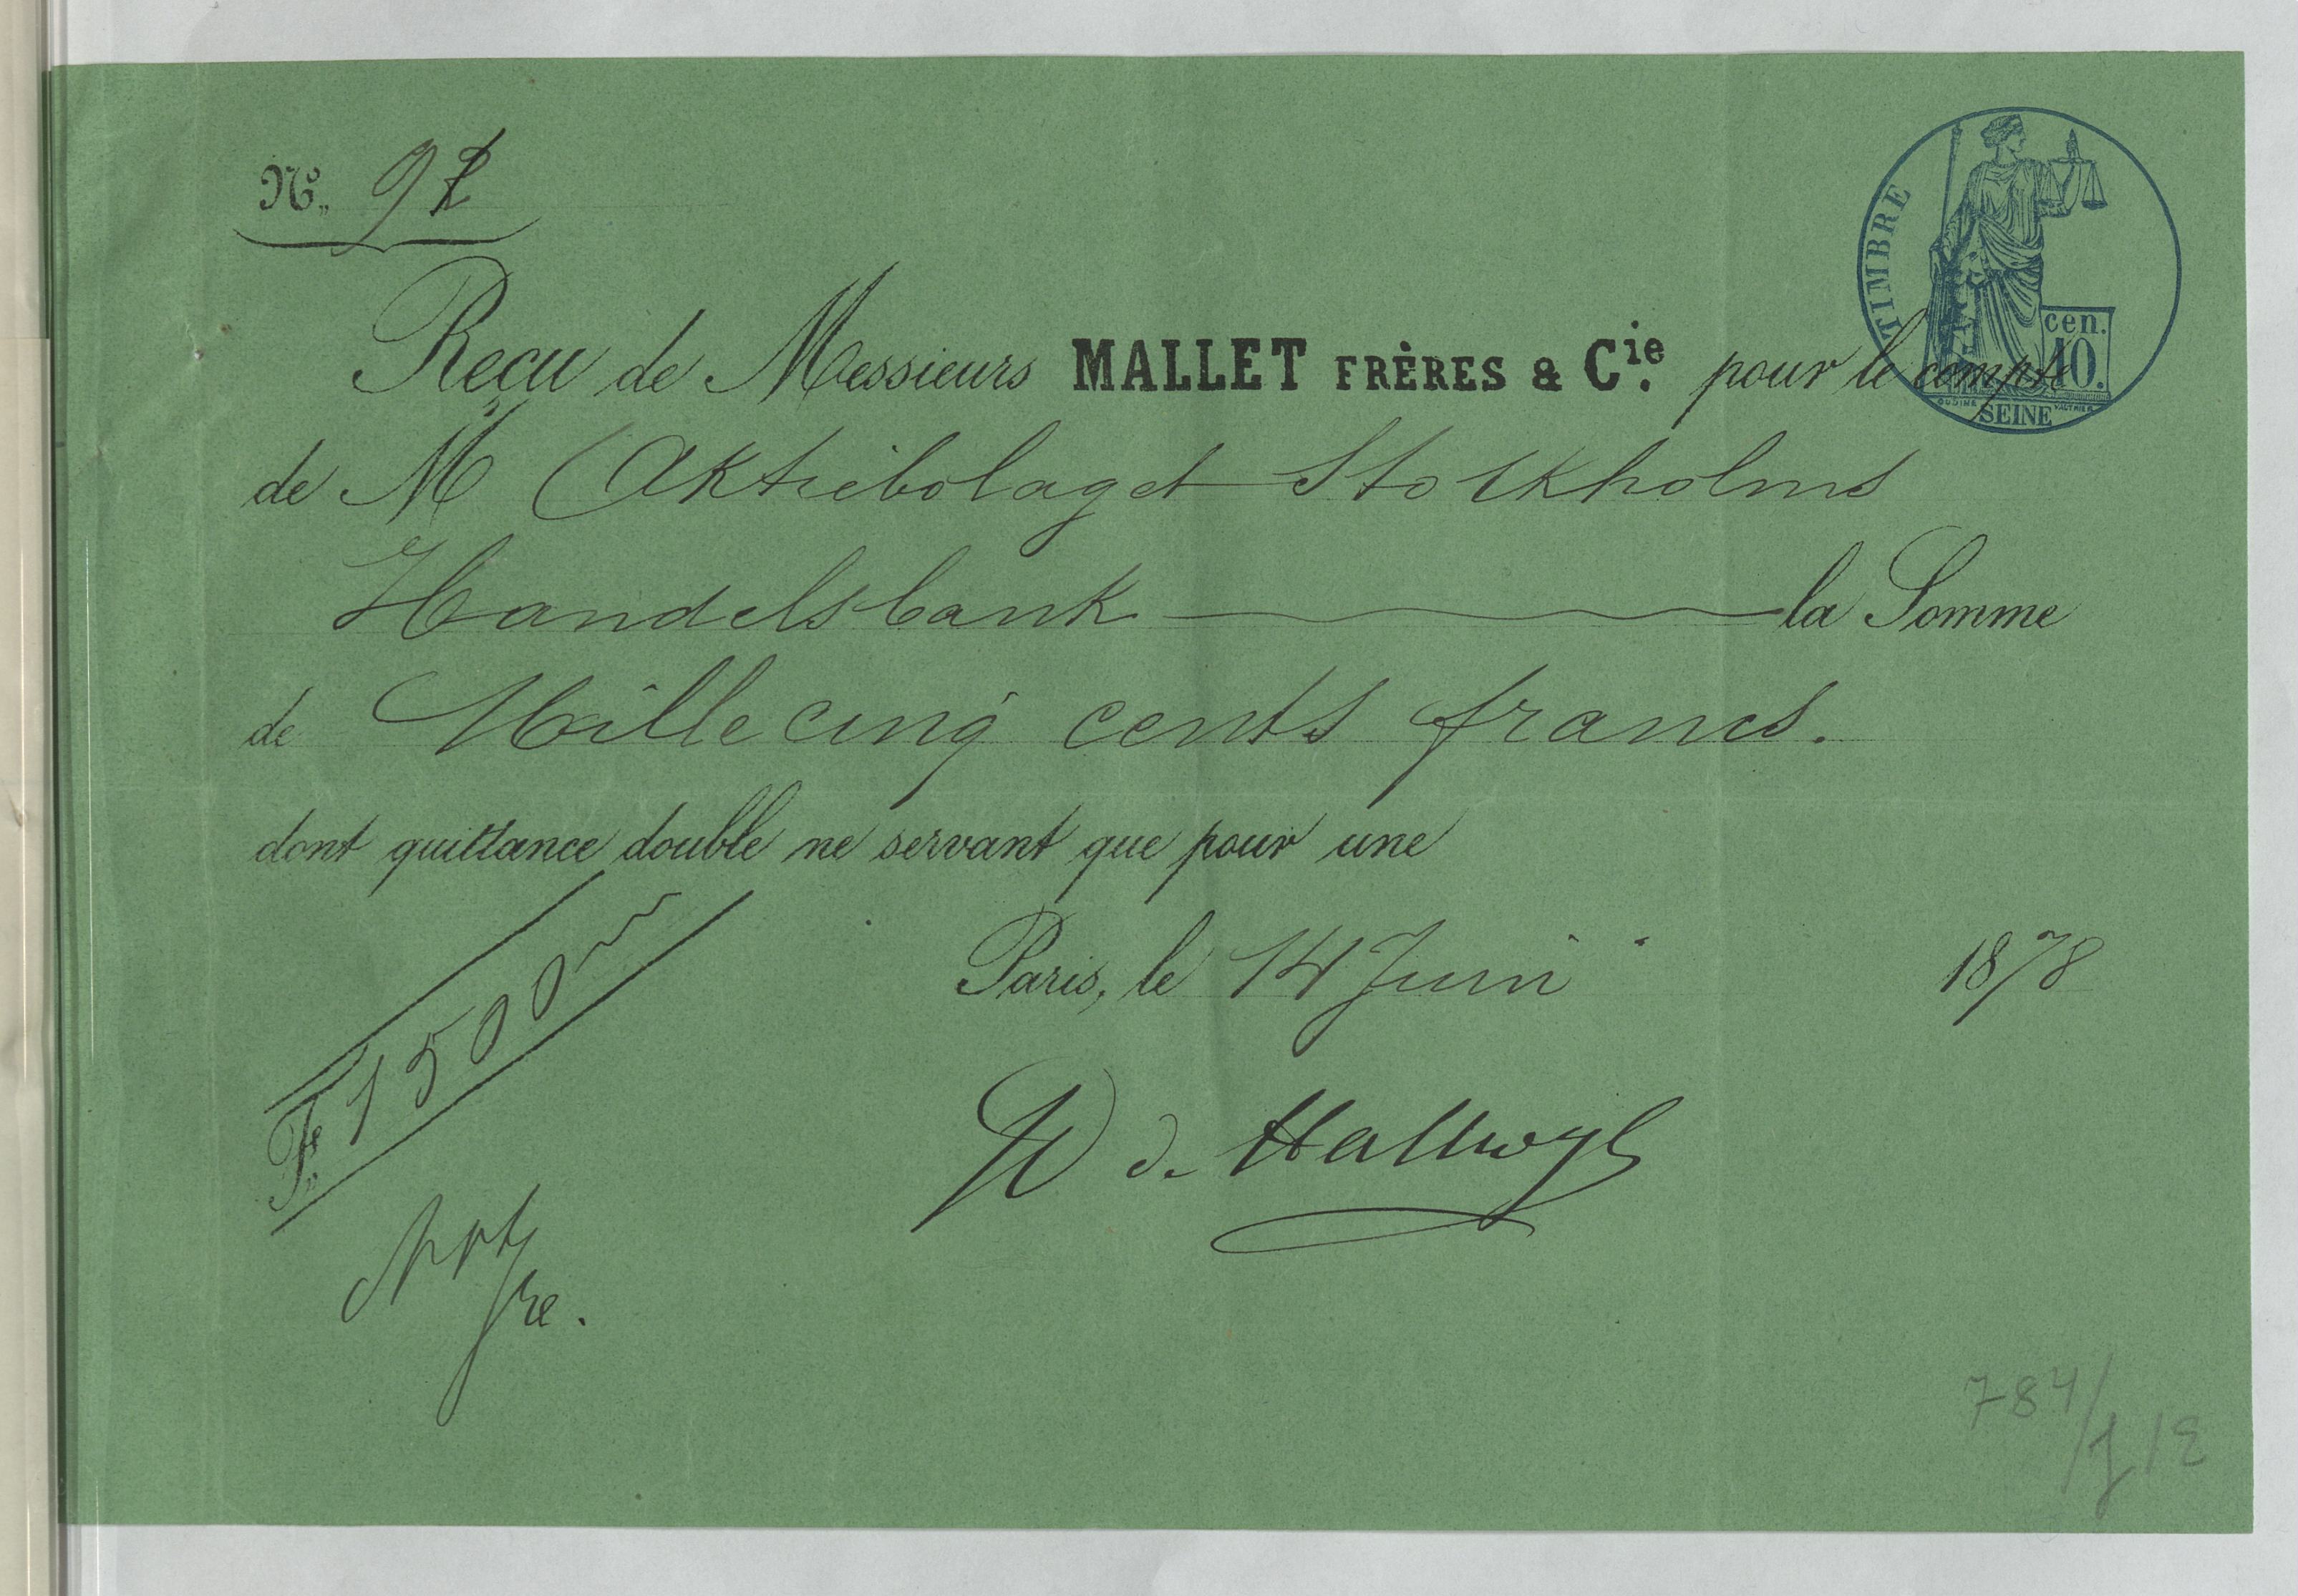 TIMBRE
cen.
10.
OUDINÉ
SEINE
Nº 92
Reçu de Messieurs MALLET FRÈRES & Cie. pour le compte
de M Aktiebolaget Stockholms
Handelsbank la Somme
de Mille cinq cents francs.
dont quittance double ne servant que pour une
Paris, le 14 Juin 1878
F. 1500
W de Hallwyl
784/1